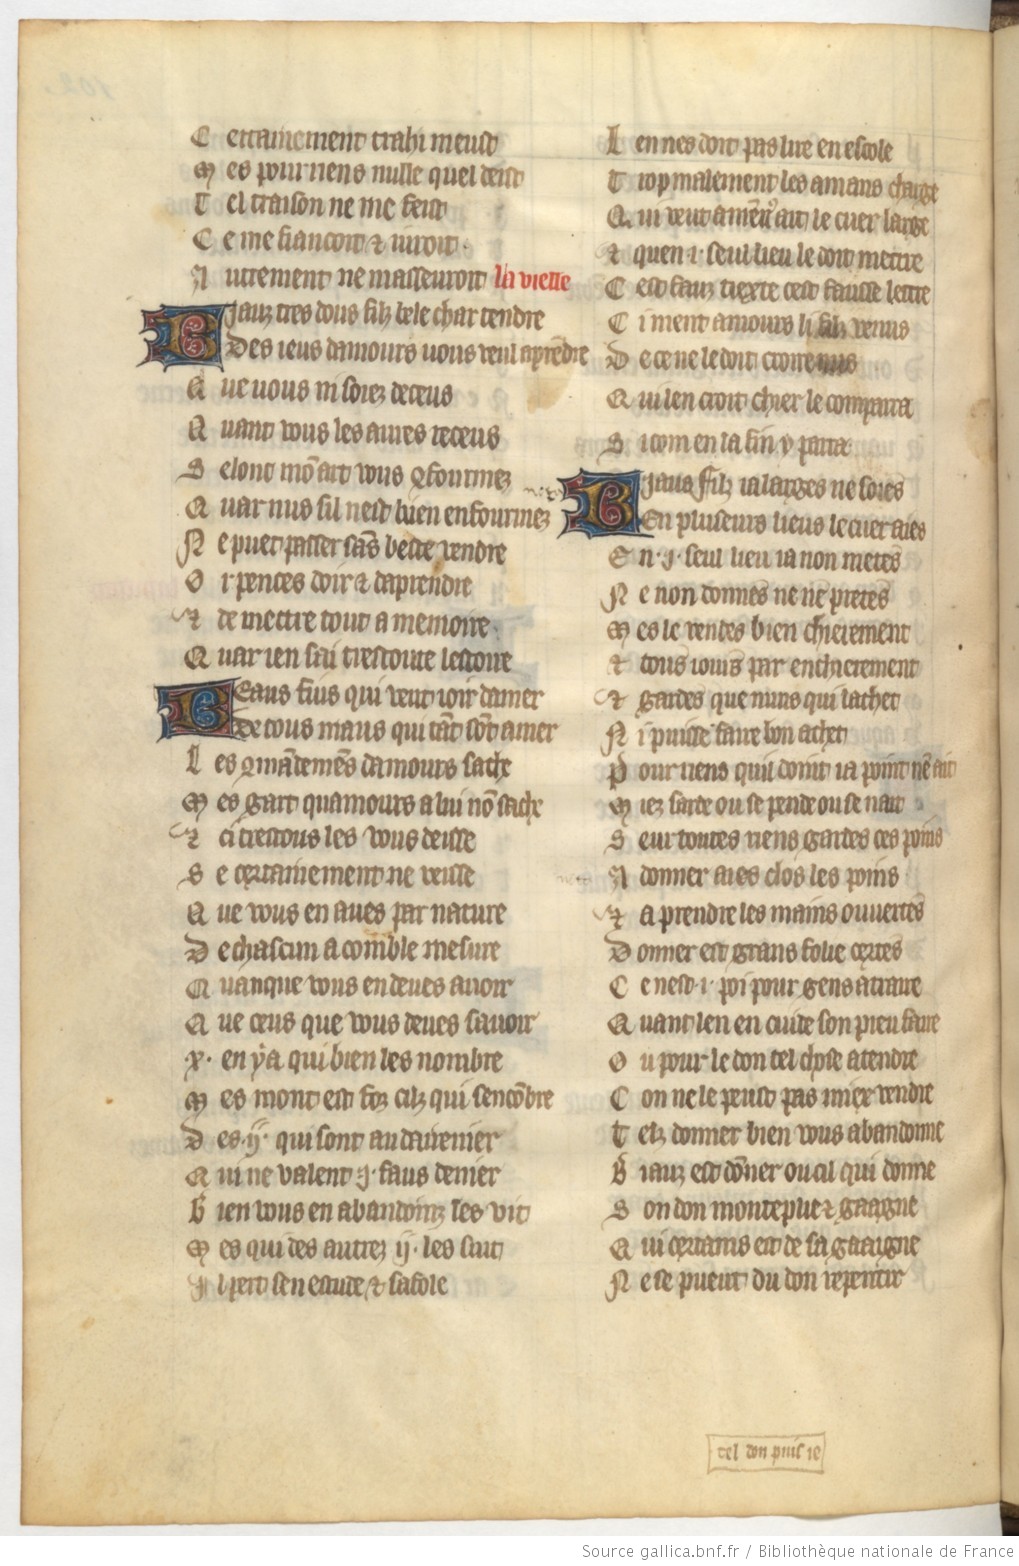 C ertainement trahi meust
M es pour riens nulle quel deist
T el traison ne me feist
C e me fiancoit & iuroit
A utrement ne masseuroit la vielle
B iauz tres dous filz bele char tendre
Des ieus damours vous veul aprēdre
Q ue vous ni soiez deceus
Q uant vous les aures receus
S elonc mō art vous gfourmez
Q uar nus sil nest bien enfourmez
N e puet passer sās beste vendre
O r pences doir & daprendre
& de mettre tout a memoire
Q uar ien sai trestoute lestoire
B eaus fius qui veut ioir damer
De tous maus qui tāt sōt amer
L es gmādemēs damours sache
M es gart quamours a lui nō sache
& ci trestous les vous deisse
S e certainement ne veisse
Q ue vous en aves par nature
D e chascun a comble mesure
Q uanque vous en deues auoir
Q ue ceus que vous deues sauoir
.x. en ya qui bien les nombre
M es mont est fox cilz qui sencōbre
D es .ij. qui sont au daireniers
Q ui ne valent .j. faus denier
B ien vous en abandoing les viij
M es qui des autrez ij. les suit
I l pert sen estude & safole
L en nes doit pas lire en escole
T rop malement les amans charge
Q ui veut amēs ait le cuer large
& quen .i. seul lieu le doit mettre
C est faux tiexte cest fausse lettre
C i ment amours li filz venus
D e ce ne le doit croire nus
Q ui len croit chier le comparra
S i com en la fin y parra
B iaus filz ia larges ne soies
En pluseurs lieus le cuer aies
E n .j. seul lieu ia non metes
N e non donnes ne ne pretes
M es le vendes bien chierement
& tous iours par enchierement
& gardes que nuns qui lachet
N i puisse faire bon achet
P our riens quil doint ia point nē ait
M iez sarde ou se pende ou se nait
S eur toutes riens gardes ces poins
A donner aies clos les poins
& a prendre les mains ouuertes
D onner est grans folie certes
C e nest .i. poi pour gens atraire
Q uant len en cuide son preu faire
O u pour le don tel chose atendre
C on ne le peust pas miex vendre
T elz donner bien vous abandonne
B iauz est dōner ou cil qui donne
S on don monteplie & gaagne
Q ui certains est de sa gaaigne
N e se pueut du don repentir
tel don puis ie
Source gallica.bnf.fr / Bibliothèque nationale de France